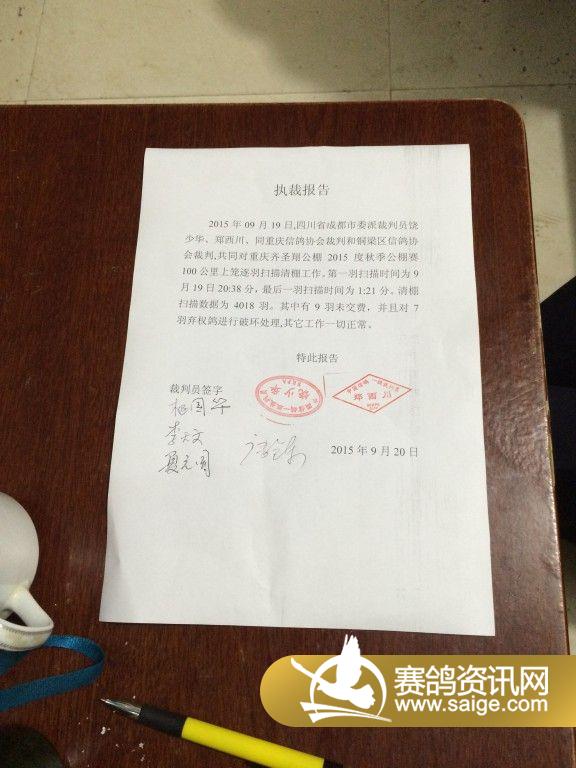 执裁报告
2015 年 09 月 19 日,四川省成都市委派裁判员饶
少华、郑西川、同重庆信鸽协会裁判和铜梁区信鸽协
会裁判,共同对重庆齐圣翔公棚 2015 度秋季公棚赛
100 公里上笼逐羽扫描清棚工作。第一羽扫描时间为 9
月 19 日 20:38 分，最后一羽扫描时间为 1:21 分。清棚
扫描数据为 4018 羽。其中有 9 羽未交费，并且对 7
羽弃权鸽进行破环处理,其它工作一切正常。
特此报告
裁判员签字
饶少华
夏元国
2015 年 9 月 20 日
赛鸽资讯网
www.saige.com